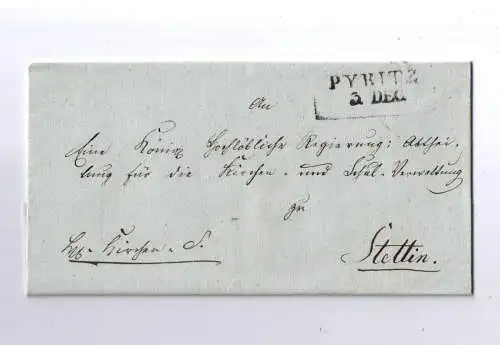 PYRITZ
3. DEC.
An
Eine König. Hochlöbliche Regierung: Abthei-
lung für die Kirchen- und Schul-Verwaltung
zu
Kirchen-S.
Stettin.